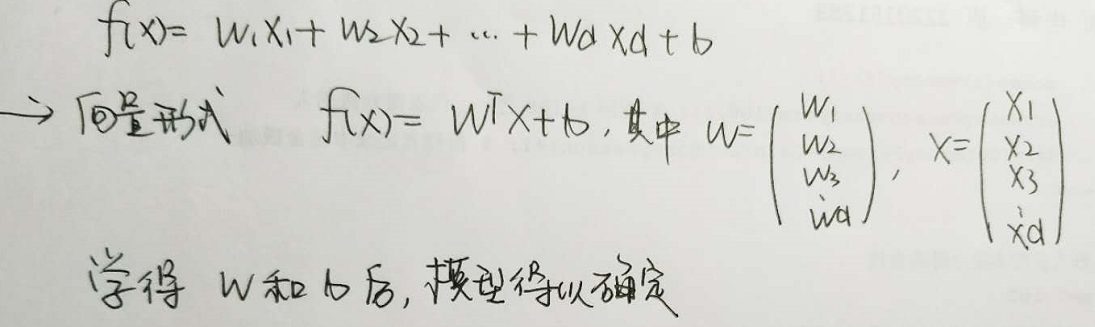 f(x) = w₁x₁ + w₂x₂ + … + wdxd + b
→ 向量形式 f(x) = wᵀx + b，其中 w = (w₁ w₂ w₃ ⋮ wd)，x = (x₁ x₂ x₃ ⋮ xd)
学得 w 和 b 后，模型得以确定